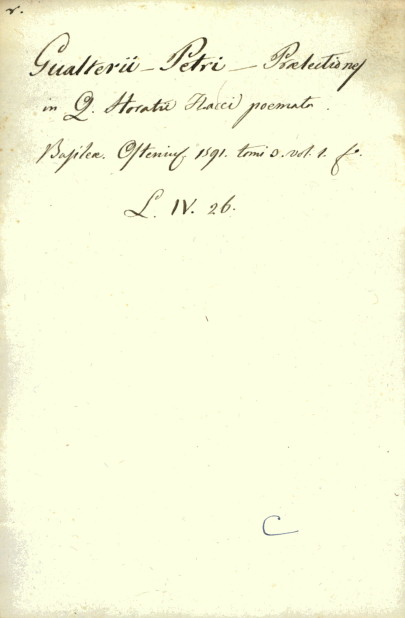 r.
Gualterii - Petri - Prælectiones
in Q. Horatii Flacci poemata.
Basileæ. Ostenius 1591. tomi 3. vol. 1. f.
L. IV. 26.
C